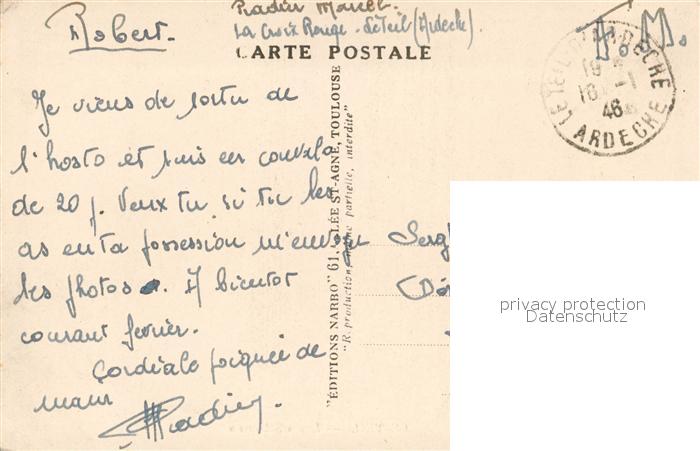 Robert.
Pradier Marcel
La Croix Rouge - Le Teil (Ardèche)
CARTE POSTALE
F. M.
LE TEIL D'ARDECHE
18
16 -1
46
ARDECHE
Je viens de sortir de
l'hosto et suis en convalo
de 20 j. Veux tu si tu les
as en ta possession m'envoyer
les photos. A bientot
courant fevrier.
Cordiale poignée de
main
Pradier.
"ÉDITIONS NARBO" 61, ALLÉE ST-AGNE, TOULOUSE
"Reproduction, même partielle, interdite"
Serg
privacy protection
Datenschutz